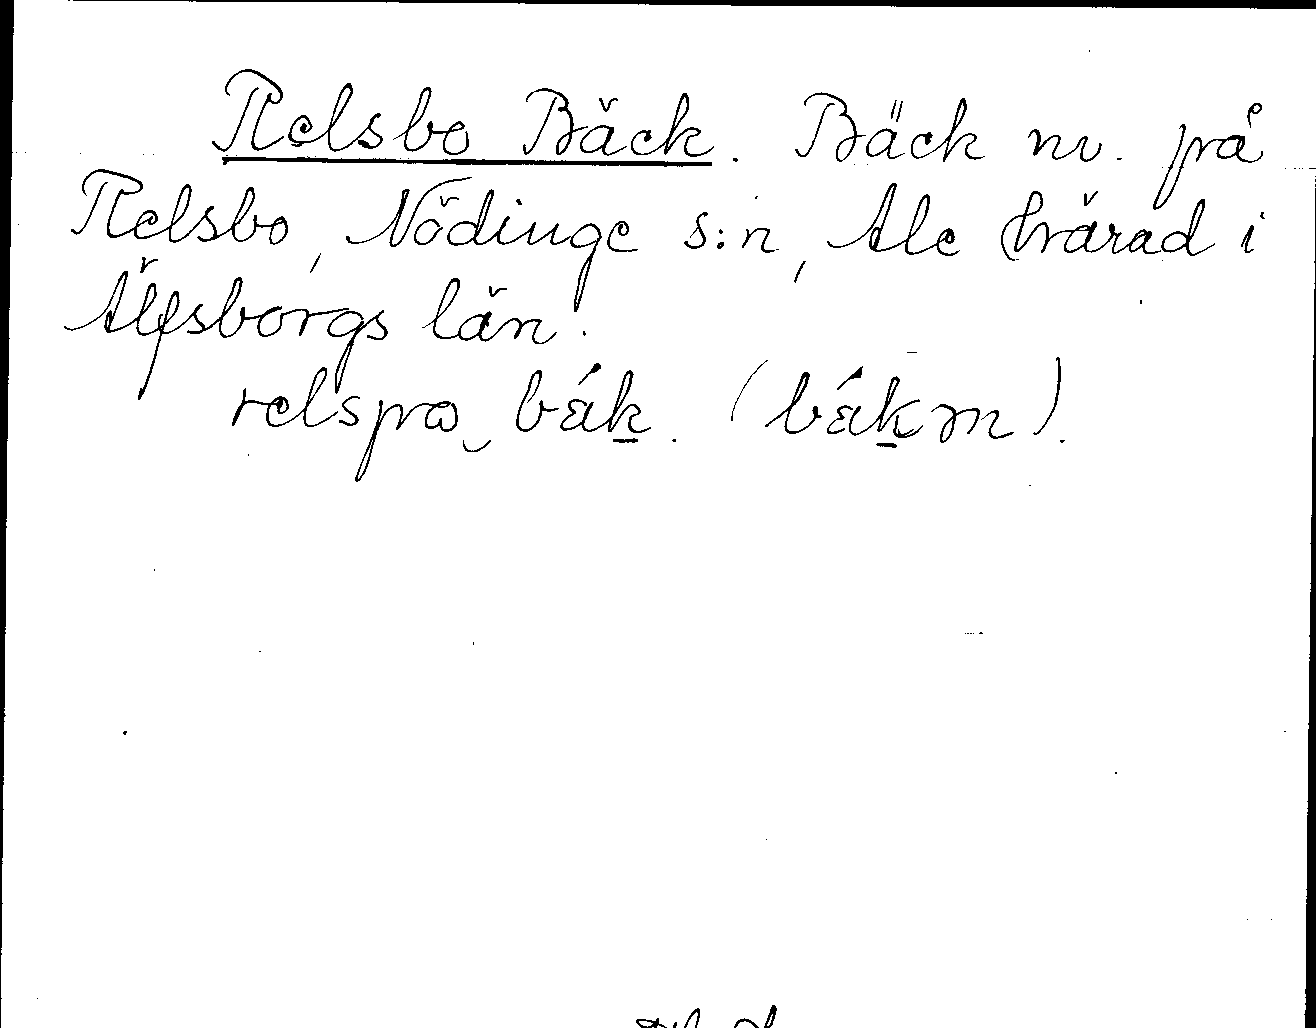 Relsbo Bäck. Bäck nv. på
Relsbo, Nödinge s:n, Ale härad i
Älfsborgs län.
relspω bák. (bákm).